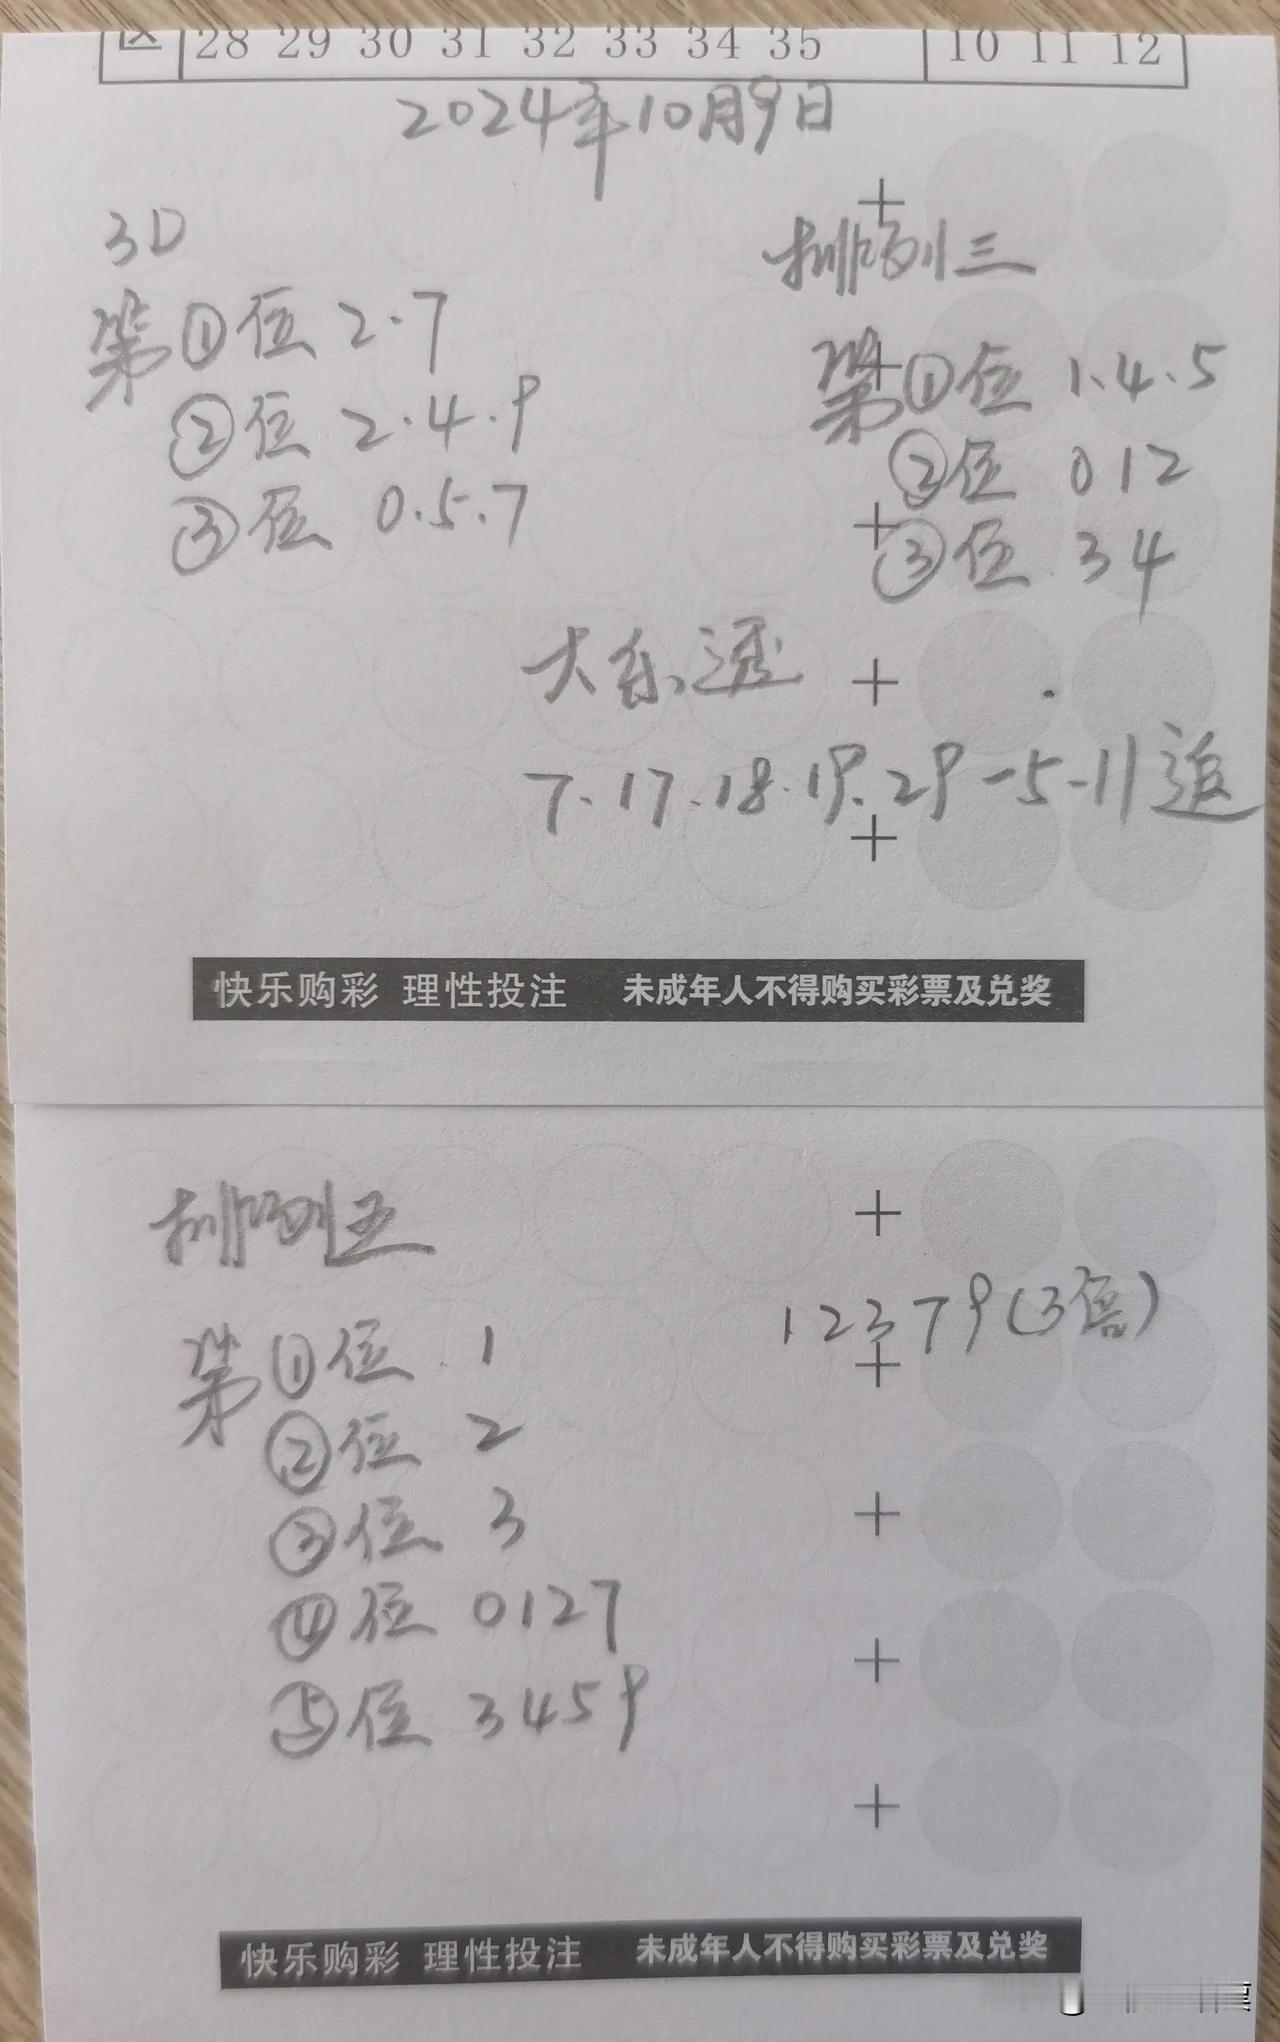 区 28 29 30 31 32 33 34 35 10 11 12
2024年10月9日
3D
第①位 2.7
②位 2.4.9
③位 0.5.7
排列三
第①位 1.4.5
②位 012
③位 34
大乐透
7.17.18.19.29-5-11追
快乐购彩 理性投注 未成年人不得购买彩票及兑奖
排列五
第①位 1
②位 2
③位 3
④位 0127
⑤位 3459
12379(3倍)
快乐购彩 理性投注 未成年人不得购买彩票及兑奖